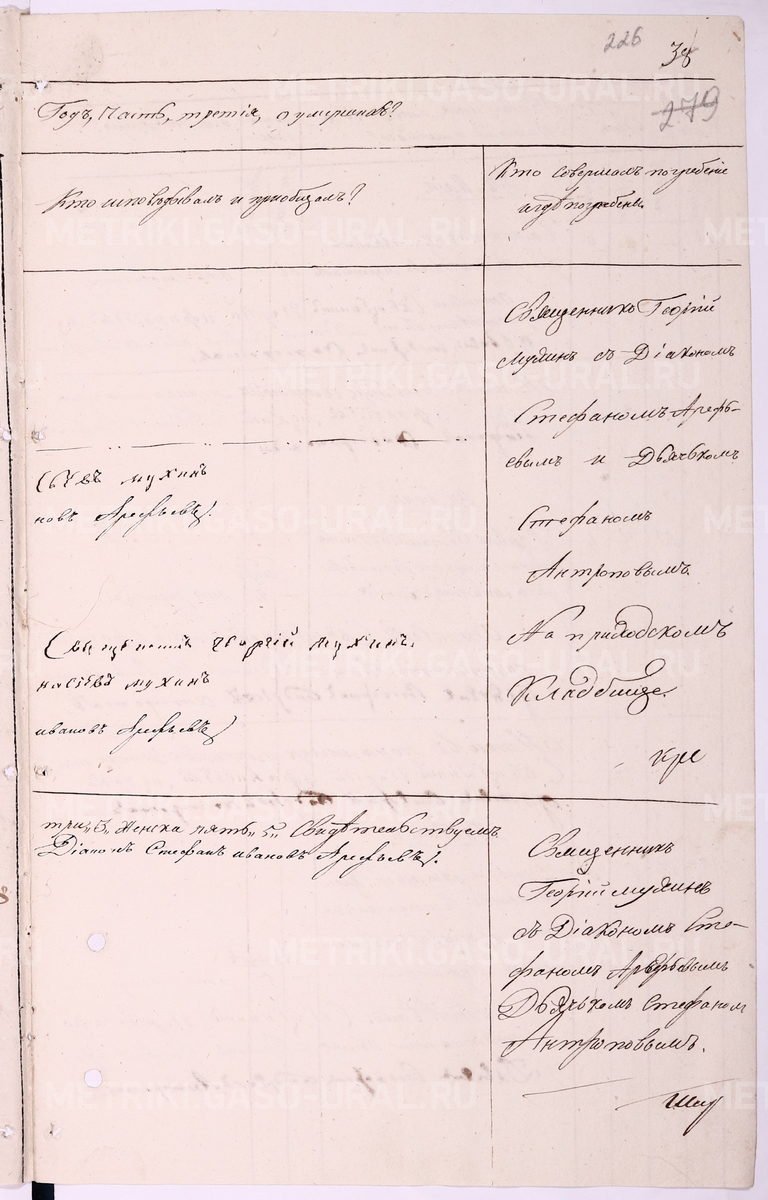 226
38
279
Годъ, Часть, третія, о умершихъ?
Кто исповѣдывалъ и приобщалъ?
Кто совершалъ погребеніе
и гдѣ погребены.
Священникъ Георгій
Мухинъ съ Діакономъ
Стефаномъ Арефь-
евымъ и Дьячькомъ
Стефаномъ
Антроповымъ
На приходскомъ
Кладбище.
мухинъ
новъ Арефьевъ).
Георгій мухинъ.
мухинъ
ивановъ Арефьевъ)
три „3„ женска пять „5„ Свидѣтельствуемъ
Діаконъ Стефанъ ивановъ Арефьевъ).
Священникъ
Георгій Мухинъ
съ Діакономъ Сте-
фаномъ Арефьевымъ
Дьячькомъ Стефаном
Антроповымъ.
METRIKI.GASO-URAL.RU